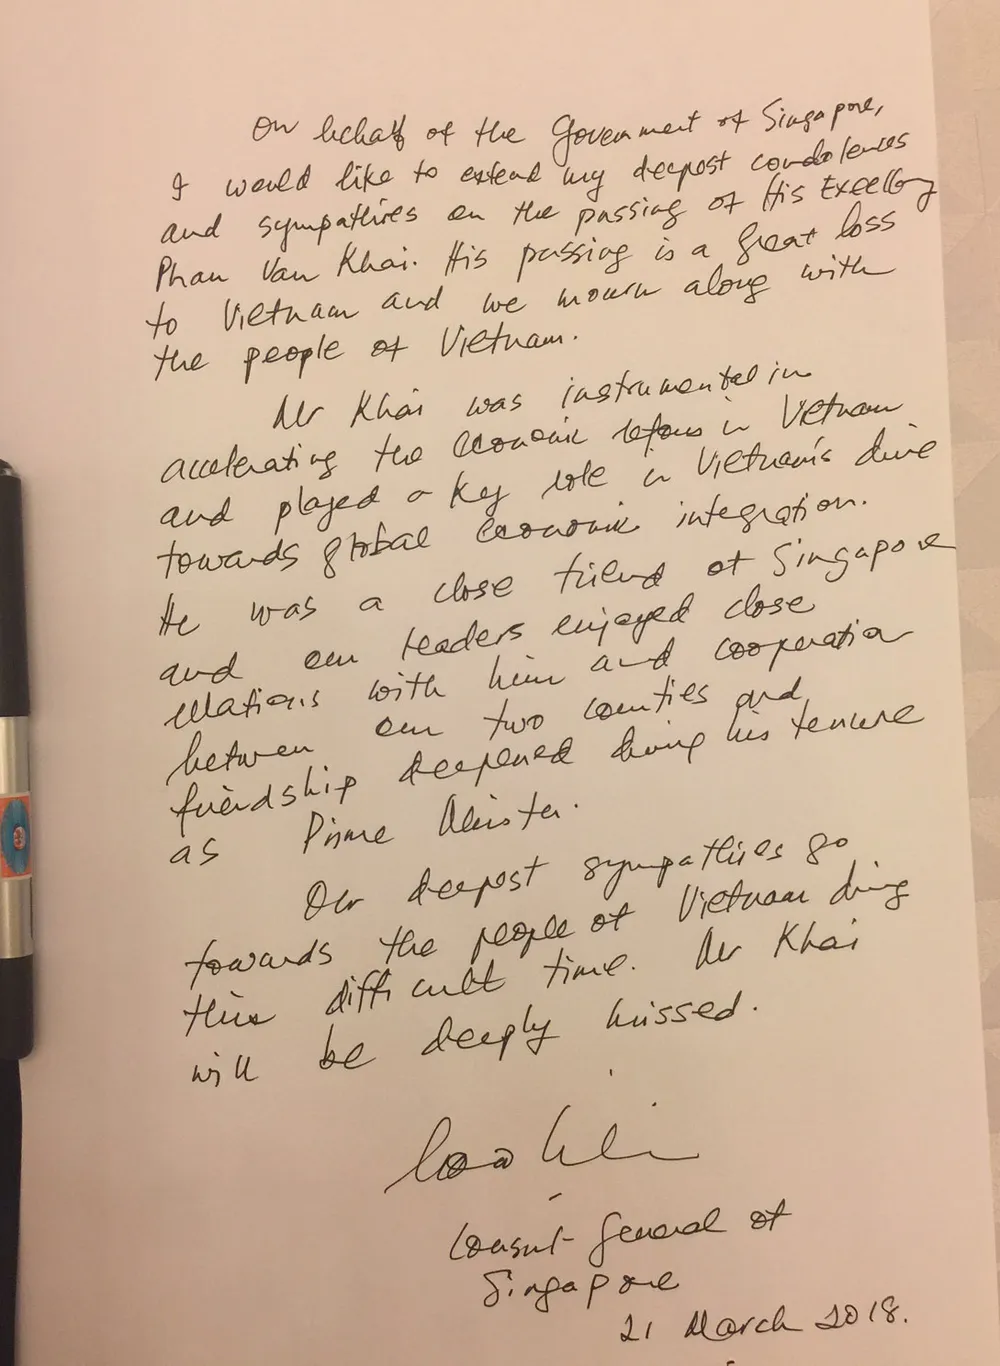 On behalf of the Government of Singapore,
I would like to extend my deepest condolences
and sympathies on the passing of His Excellency
Phan Van Khai. His passing is a great loss
to Vietnam and we mourn along with
the people of Vietnam.
Mr Khai was instrumental in
accelerating the economic reforms in Vietnam
and played a key role in Vietnam's drive
towards global economic integration.
He was a close friend of Singapore
and our leaders enjoyed close
relations with him and cooperation
between our two countries and
friendship deepened during his tenure
as Prime Minister.
Our deepest sympathies go
towards the people of Vietnam during
this difficult time. Mr Khai
will be deeply missed.
Consul-General of
Singapore
21 March 2018.